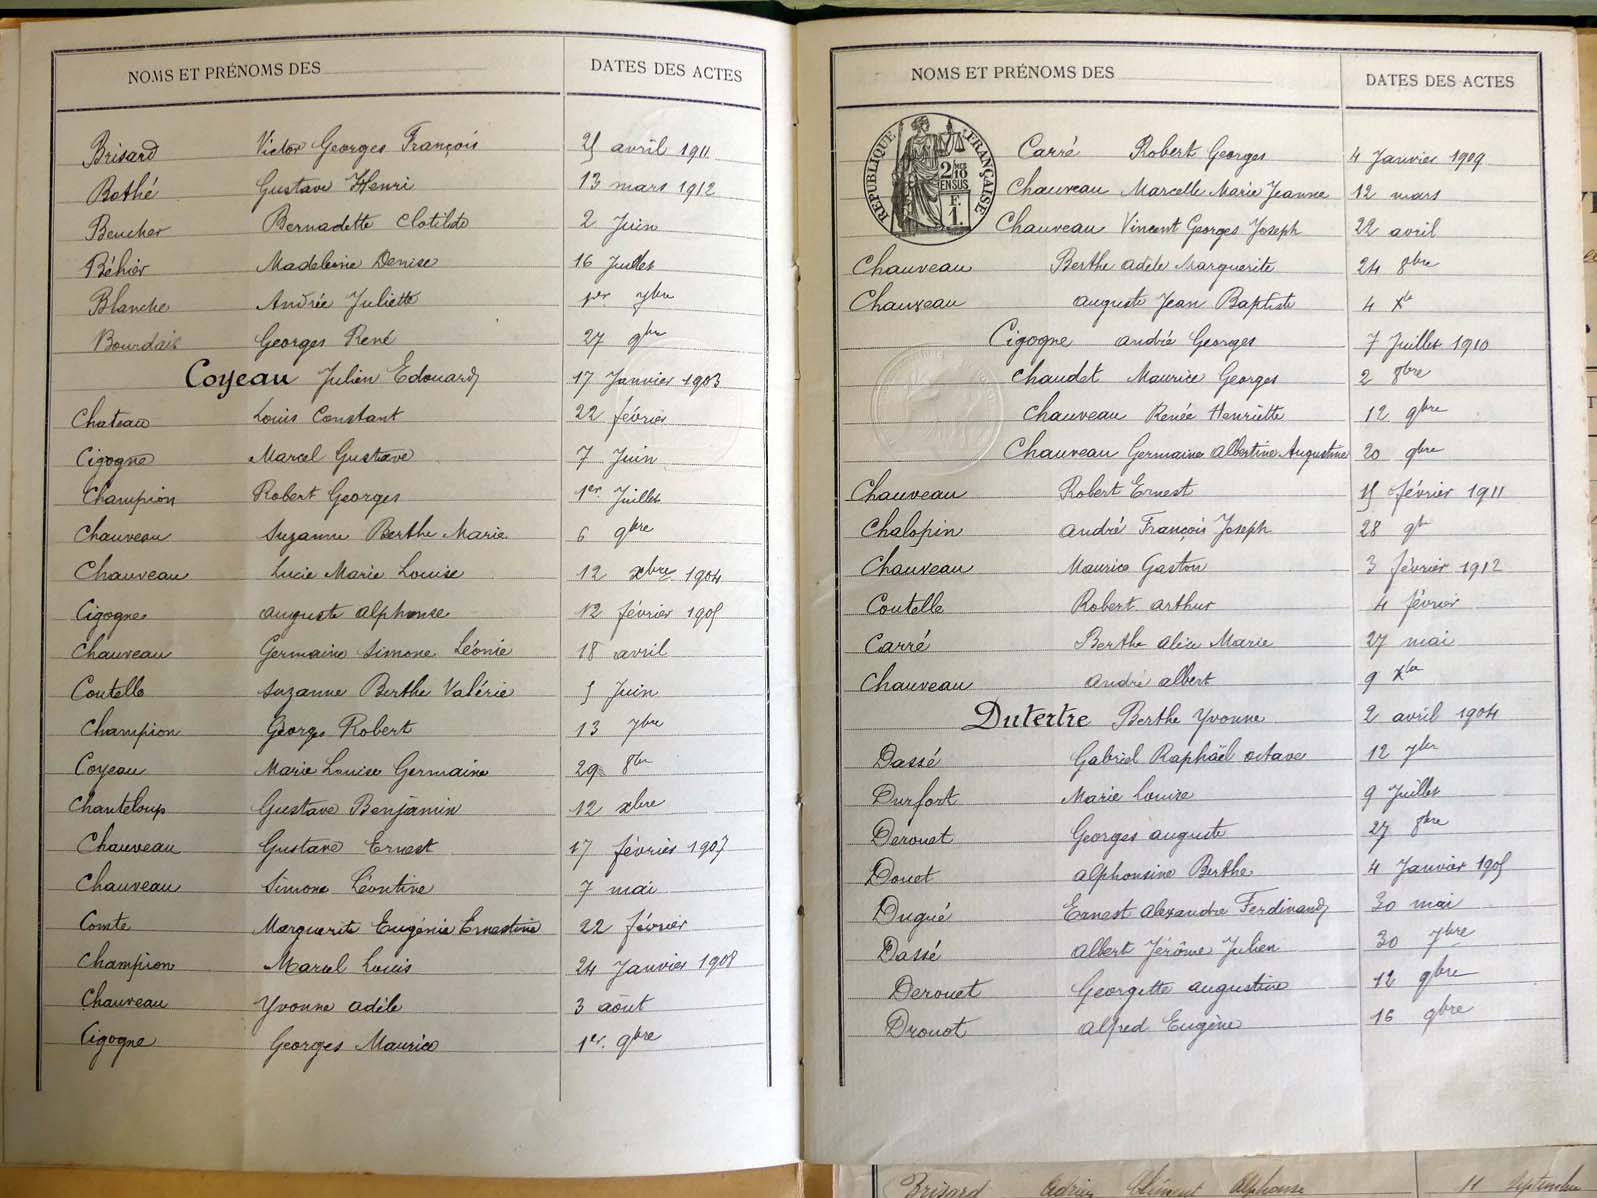 NOMS ET PRÉNOMS DES
DATES DES ACTES
Brisard Victor Georges François 25 avril 1911
Bothé Gustave Henri 13 mars 1912
Beucher Bernadette Clotilde 2 Juin
Béhier Madeleine Denise 16 Juillet
Blanche Andrée Juliette 1er 7bre
Bourdais Georges René 27 9bre
Coyeau Julien Edouard 17 Janvier 1903
Chateau Louis Constant 22 février
Cigogne Marcel Gustave 7 Juin
Champion Robert Georges 1er Juillet
Chauveau Suzanne Berthe Marie 6 9bre
Chauveau Lucie Marie Louise 12 xbre 1904
Cigogne auguste alphonse 12 février 1905
Chauveau Germaine Simone Léonie 18 avril
Coutelle Suzanne Berthe Valérie 5 Juin
Champion Georges Robert 13 7bre
Coyeau Marie Louise Germaine 29 8bre
Chanteloup Gustave Benjamin 12 xbre
Chauveau Gustave Ernest 17 février 1907
Chauveau Simone Léontine 7 mai
Comte Marguerite Eugénie Ernestine 22 février
Champion Marcel Louis 24 Janvier 1908
Chauveau Yvonne adèle 3 août
Cigogne Georges Maurice 1er 9bre
NOMS ET PRÉNOMS DES
DATES DES ACTES
RÉPUBLIQUE FRANÇAISE
2/10
EN SUS
F.
1.
Carré Robert Georges 4 Janvier 1909
Chauveau Marcelle Marie Jeanne 12 mars
Chauveau Vincent Georges Joseph 22 avril
Chauveau Berthe adèle Marguerite 24 8bre
Chauveau auguste Jean Baptiste 4 Xbre
Cigogne andré Georges 7 Juillet 1910
Chaudet Maurice Georges 2 8bre
Chauveau Renée Henriette 12 9bre
Chauveau Germaine Albertine Augustine 20 9bre
Chauveau Robert Ernest 15 février 1911
Chalopin andré François Joseph 28 9bre
Chauveau Maurice Gaston 3 février 1912
Coutelle Robert arthur 4 février
Carré Berthe alice Marie 27 mai
Chauveau andré albert 9 Xbre
Dutertre Berthe Yvonne 2 avril 1904
Dassé Gabriel Raphaël octave 12 7bre
Durfort Marie Louise 9 Juillet
Derouet Georges auguste 27 8bre
Douet alphonsine Berthe 4 Janvier 1905
Dugué Ernest Alexandre Ferdinand 30 mai
Dassé albert Jérôme Julien 30 7bre
Derouet Georgette augustine 12 9bre
Drouot alfred Eugène 16 9bre
Brisard Clément Alphonse 11 Septembre